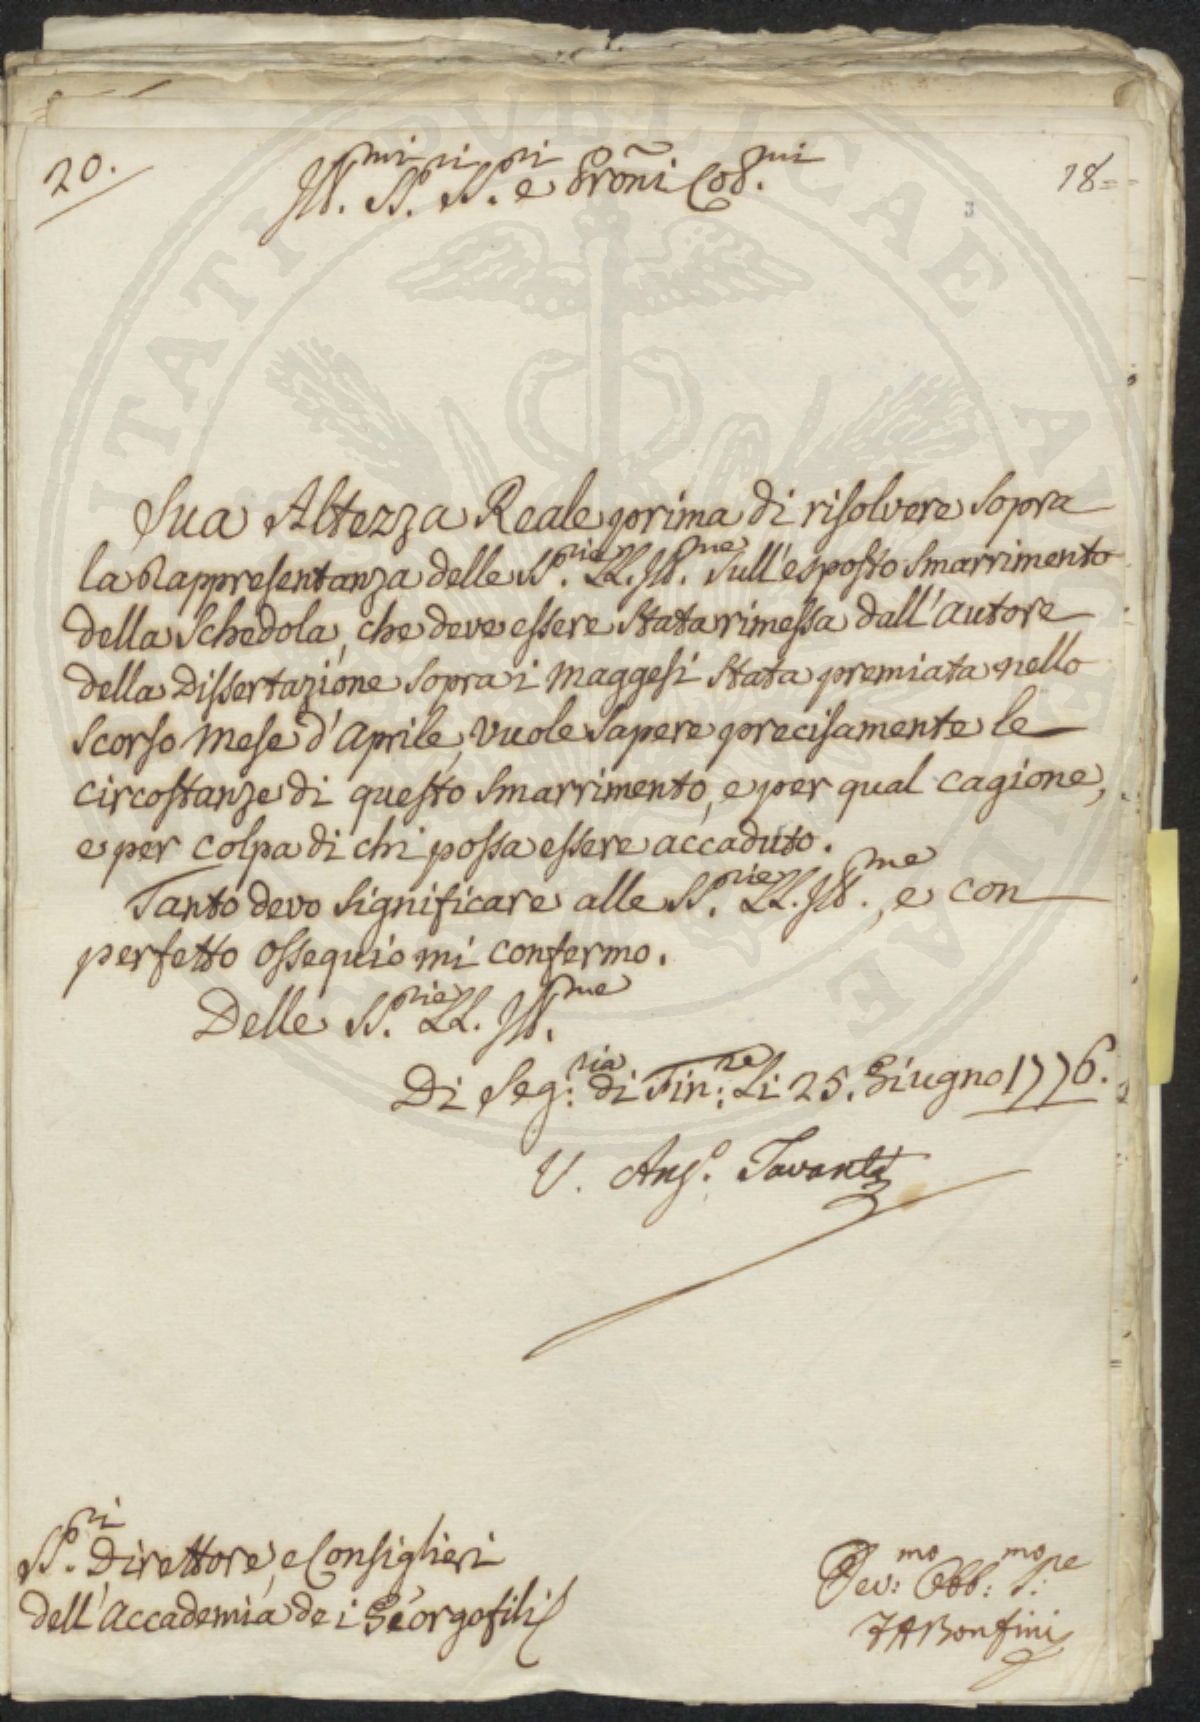 20.
18
Ill.mi SS.ri SS.ri e Proñi Col.mi
Sua Altezza Reale prima di risolvere sopra
la Rappresentanza delle SS.rie LL. Ill.me sull'esposto smarrimento
della schedola, che deve essere stata rimessa dall'autore
della Dissertazione sopra i Maggesi stata premiata nello
scorso mese d'Aprile, vuole sapere precisamente le
circostanze di questo smarrimento, e per qual cagione,
e per colpa di chi possa essere accaduto.
Tanto devo significare alle SS.rie LL. Ill.me, e con
perfetto ossequio mi confermo.
Delle SS.rie LL. Ill.me
Di Seg:ria di Fin:ze Li 25. Giugno 1776.
V. Ang.o Tavanti
SS.ri Direttore, e Consiglieri
dell'Accademia dei Georgofili
Dev:mo Obb:mo S:re
Bonfini